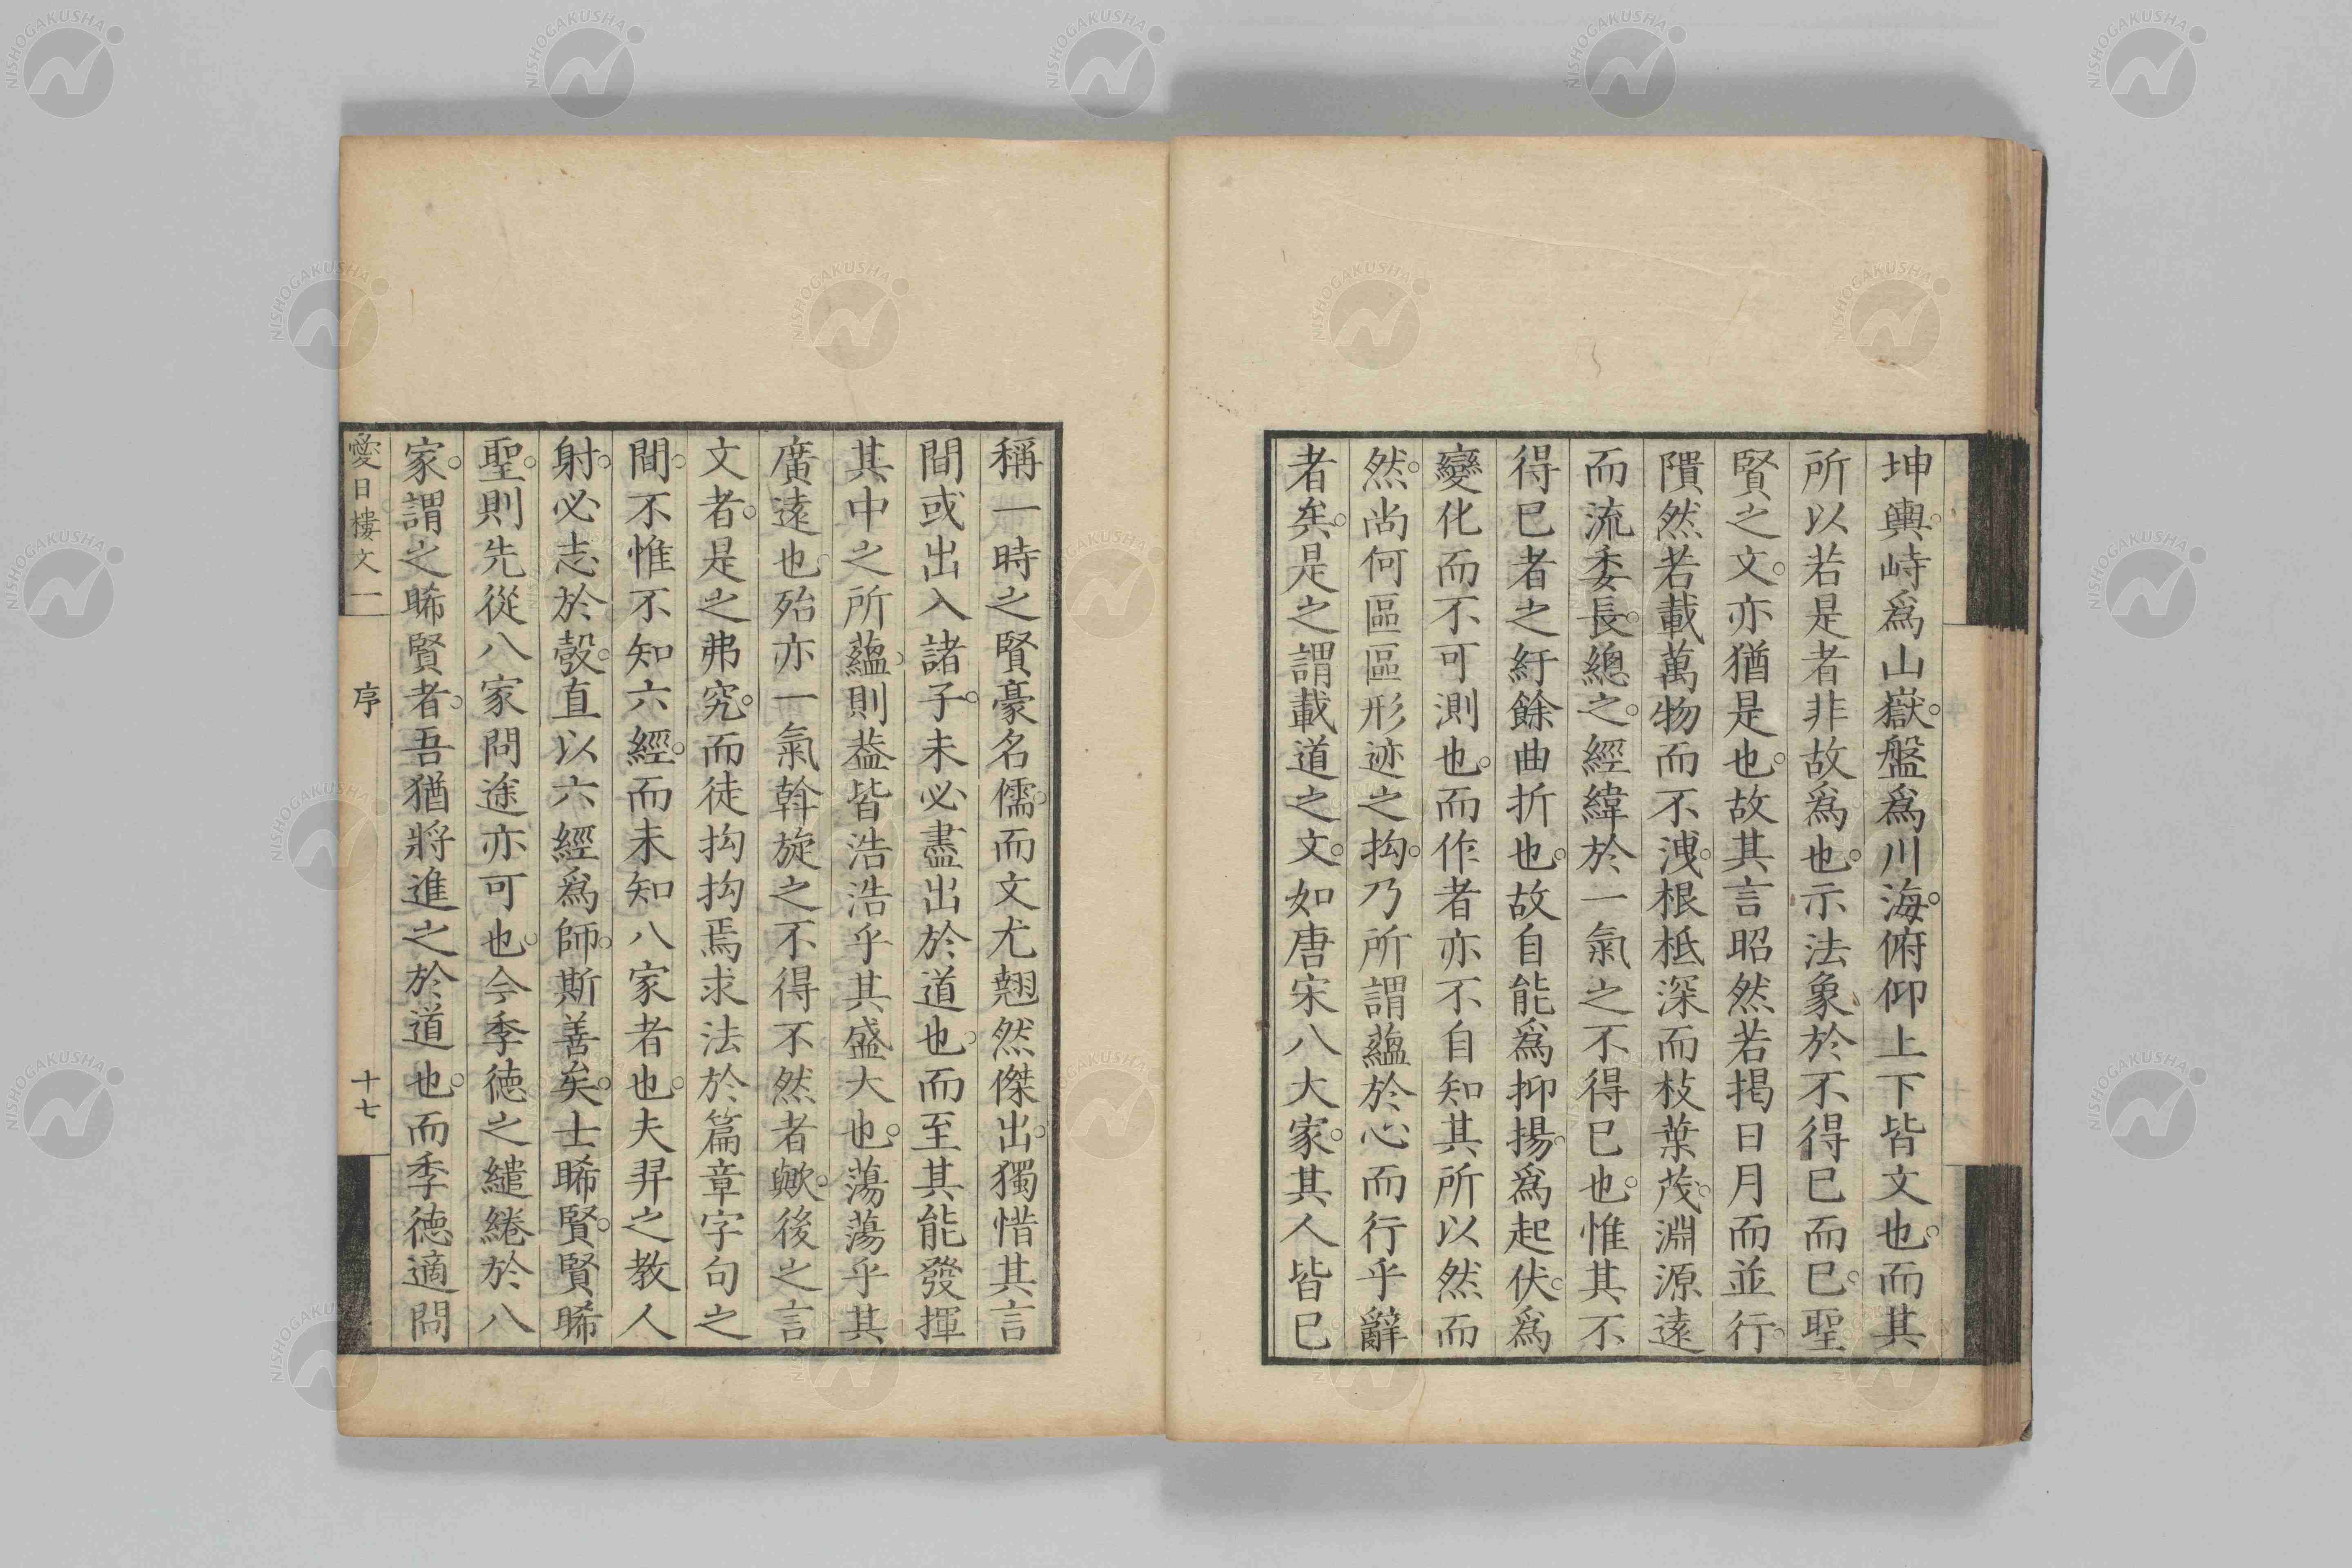 坤輿。峙爲山嶽。盤爲川海。俯仰上下皆文也。而其
所以若是者非故爲也。示法象於不得已而已。聖
賢之文。亦猶是也。故其言昭然若掲日月而並行。
隤然若載萬物而不洩。根柢深而枝葉茂。淵源遠
而流委長。總之。經緯於一氣之不得已也。惟其不
得已者之紆餘曲折也。故自能爲抑揚。爲起伏。爲
變化而不可測也。而作者亦不自知其所以然而
然。尚何區區形迹之拘。乃所謂蘊於心而行乎辭
者矣。是之謂載道之文。如唐宋八大家。其人皆已
稱一時之賢豪名儒。而文尤翹然傑出。獨惜其言
間或出入諸子。未必盡出於道也。而至其能發揮
其中之所蘊。則葢皆浩浩乎其盛大也。蕩蕩乎其
廣遠也。殆亦一氣斡旋之不得不然者歟。後之言
文者。是之弗究。而徒拘拘焉求法於篇章字句之
間。不惟不知六經。而未知八家者也。夫羿之教人
射。必志於彀。直以六經爲師。斯善矣。士睎賢。賢睎
聖。則先從八家問途亦可也。今季徳之繾綣於八
家。謂之睎賢者。吾猶將進之於道也。而季徳適問
愛日樓文一 序 十七
NISHOGAKUSHA